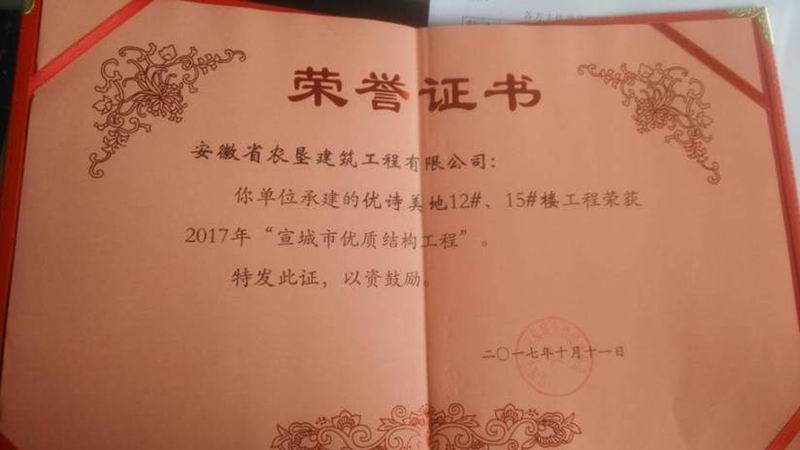 荣誉证书
安徽省农垦建筑工程有限公司：
你单位承建的优诗美地12#、15#楼工程荣获
2017年“宣城市优质结构工程”。
特发此证，以资鼓励。
二〇一七年十月十一日